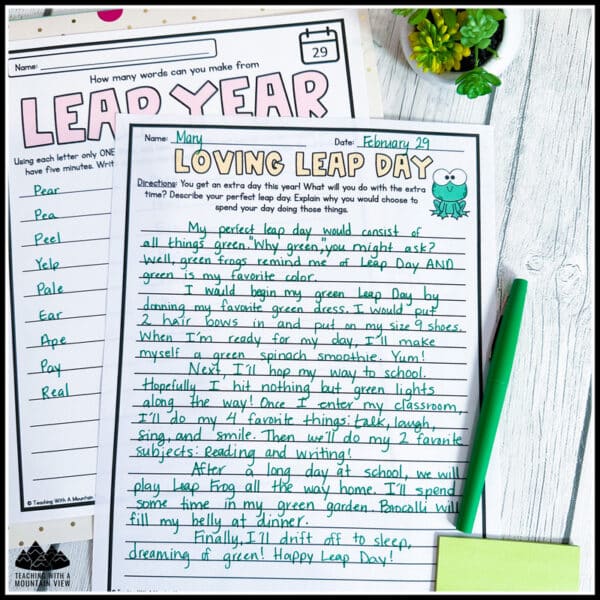 Name:
29
How many words can you make from
LEAP YEAR
Using each letter only ONE
have five minutes. Writ
Pear
Pea
Peel
Yelp
Pale
Ear
Ape
Pay
Real
© Teaching With A Mountain
Name: Mary Date: February 29
LOVING LEAP DAY
Directions: You get an extra day this year! What will you do with the extra
time? Describe your perfect leap day. Explain why you would choose to
spend your day doing those things.
My perfect leap day would consist of
all things green. "Why green," you might ask?
Well, green frogs remind me of Leap Day AND
green is my favorite color.
I would begin my green Leap Day by
donning my favorite green dress. I would put
2 hair bows in and put on my size 9 shoes.
When I'm ready for my day, I'll make
myself a green spinach smoothie. Yum!
Next, I'll hop my way to school.
Hopefully I hit nothing but green lights
along the way! Once I enter my classroom,
I'll do my 4 favorite things: talk, laugh,
sing, and smile. Then we'll do my 2 favorite
subjects: Reading and writing!
After a long day at school, we will
play Leap Frog all the way home. I'll spend
some time in my green garden. Broccolli will
fill my belly at dinner.
Finally, I'll drift off to sleep,
dreaming of green! Happy Leap Day!
TEACHING WITH A
MOUNTAIN VIEW